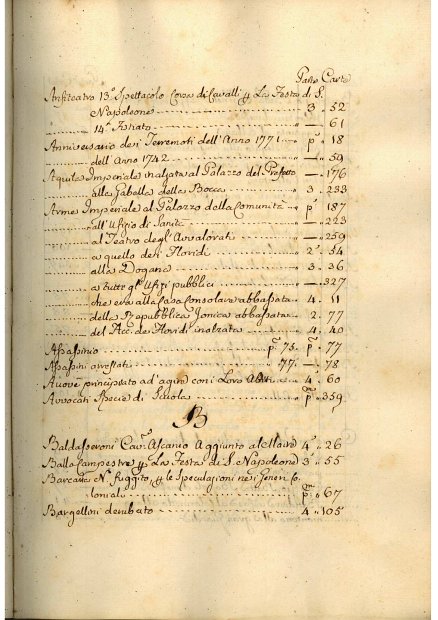 Parte Carte
Anfiteatro 13º Spettacolo Corsa di Cavalli p. La Festa di S.
Napoleone 3 . 52
14º Istiato — 61
Anniversario dei Terremoti dell'Anno 1771 pª 18
dell'Anno 1742 — 59
Aquile Imperiale inalzata al Palazzo del Prefetto — 176
alla Gabella della Bocca 3 . 233
Arme Imperiale al Palazzo della Comunità pª 187
all'Ufizio di Sanità — 223
al Teatro degl'Avvalorati — 259
a quello dei Floridi 2ª . 54
alla Dogana 3 . 36
a tutti gl'Ufizi pubblici — 327
che era alla Casa Consolare abbassata 4 . 11
della Repubblica Jonica abbassata 2 . 77
del Acc. de Floridi inalzata 4 . 40
Assassinio pª 75. pª . 77
Assassini arrestati 77. — 78
principiato ad agire con i Loro 4 . 60
Avvocati Specie di Scuola pª 359
B
Baldasseroni Cavª Ascanio Aggiunto al Maire 4ª . 26
Balla Campestre p. La Festa di S. Napoleone 3ª . 55
fuggito, p. le Speculazioni nei Generi Co
loniali pª . 67
Bargellini derubato 4 . 105